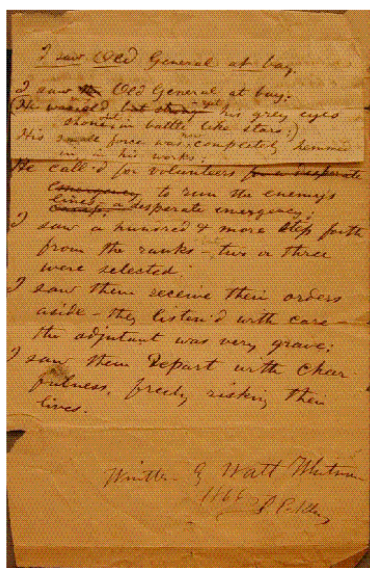 I saw Old General at bay.
I saw the Old General at bay:
(He was old, but strong yet his grey eyes
shone out in battle like stars:)
His small force was now completely hemmed
in in his works:
He call'd for volunteers for a desperate
emergency to run the enemy's
lines, a desperate emergency;
I saw a hundred & more step forth
from the ranks – but two or three
were selected:
I saw them receive their orders
aside – they listen'd with care –
the adjutant was very grave;
I saw them depart with cheer
fulness, freely risking their
lives.
Written by Walt Whitman
1866